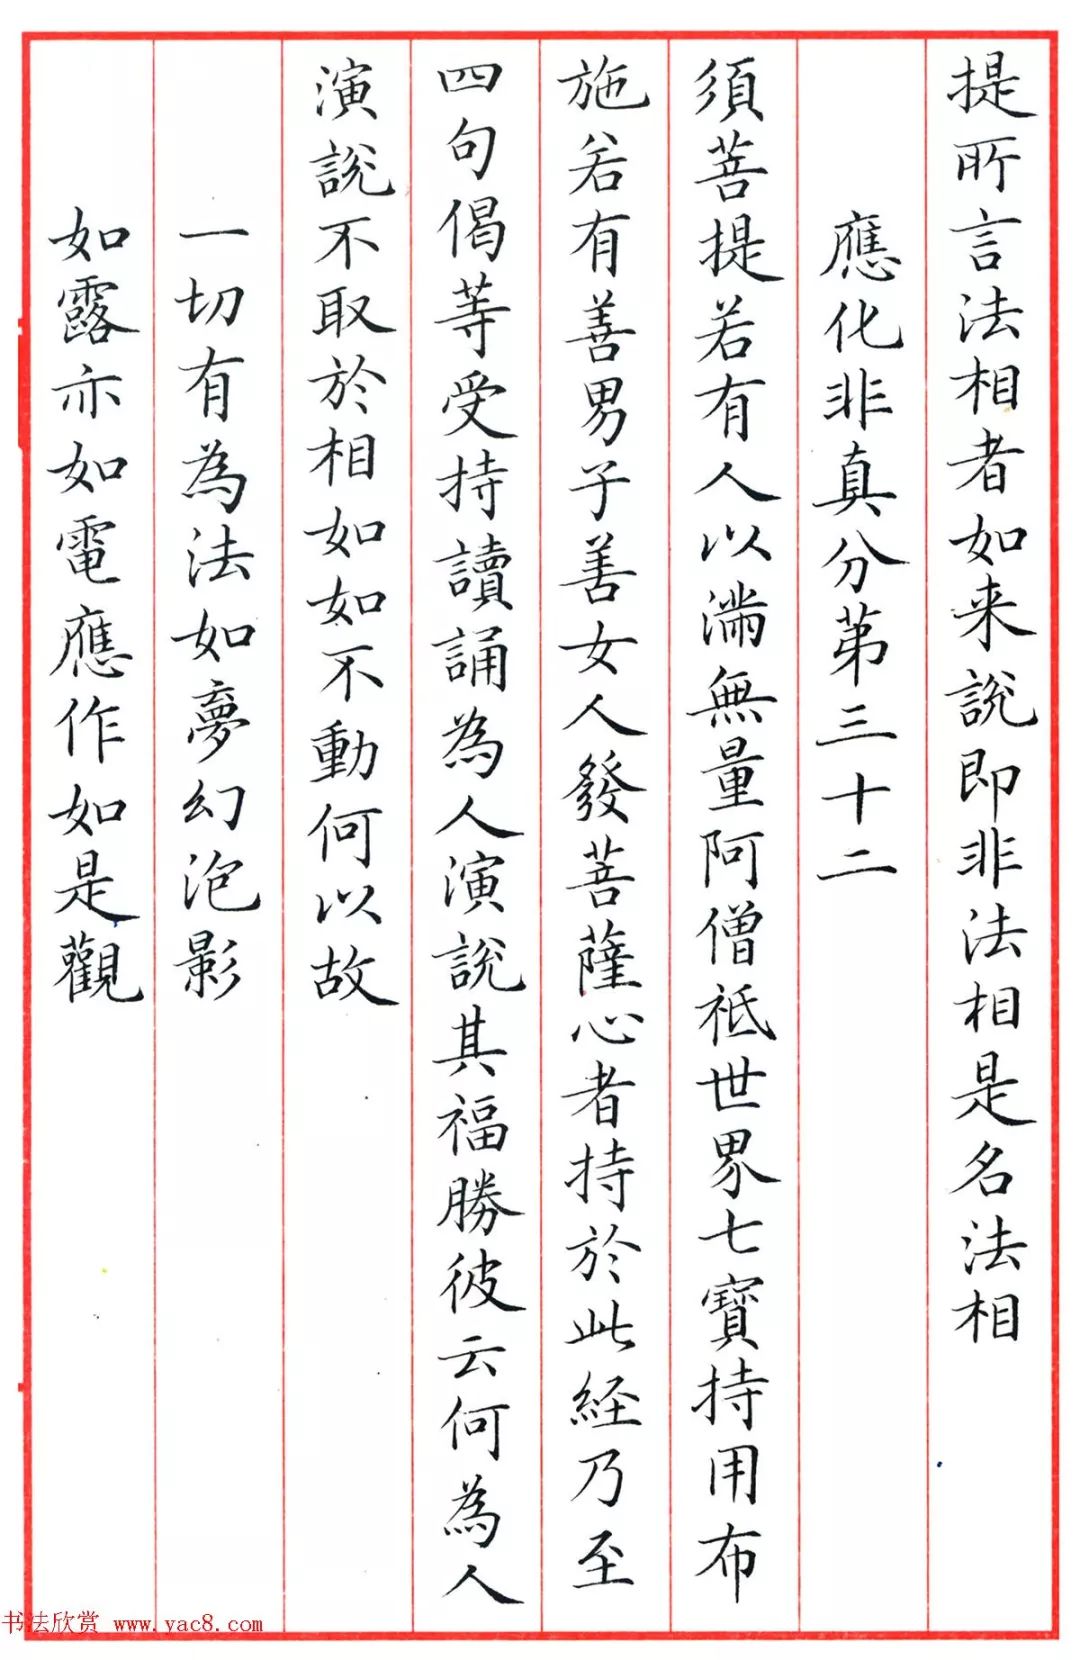 提所言法相者如来説即非法相是名法相
應化非真分第三十二
須菩提若有人以滿無量阿僧祇世界七寶持用布
施若有善男子善女人發菩薩心者持於此經乃至
四句偈等受持讀誦為人演説其福勝彼云何為人
演説不取於相如如不動何以故
一切有為法如夢幻泡影
如露亦如電應作如是觀
书法欣赏 www.yac8.com